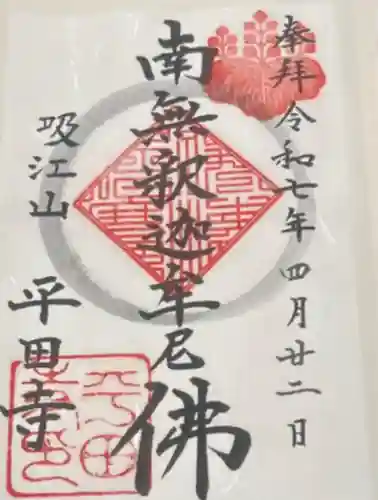 奉拝 令和七年四月廿二日
南無釈迦牟尼佛
吸江山
平田寺